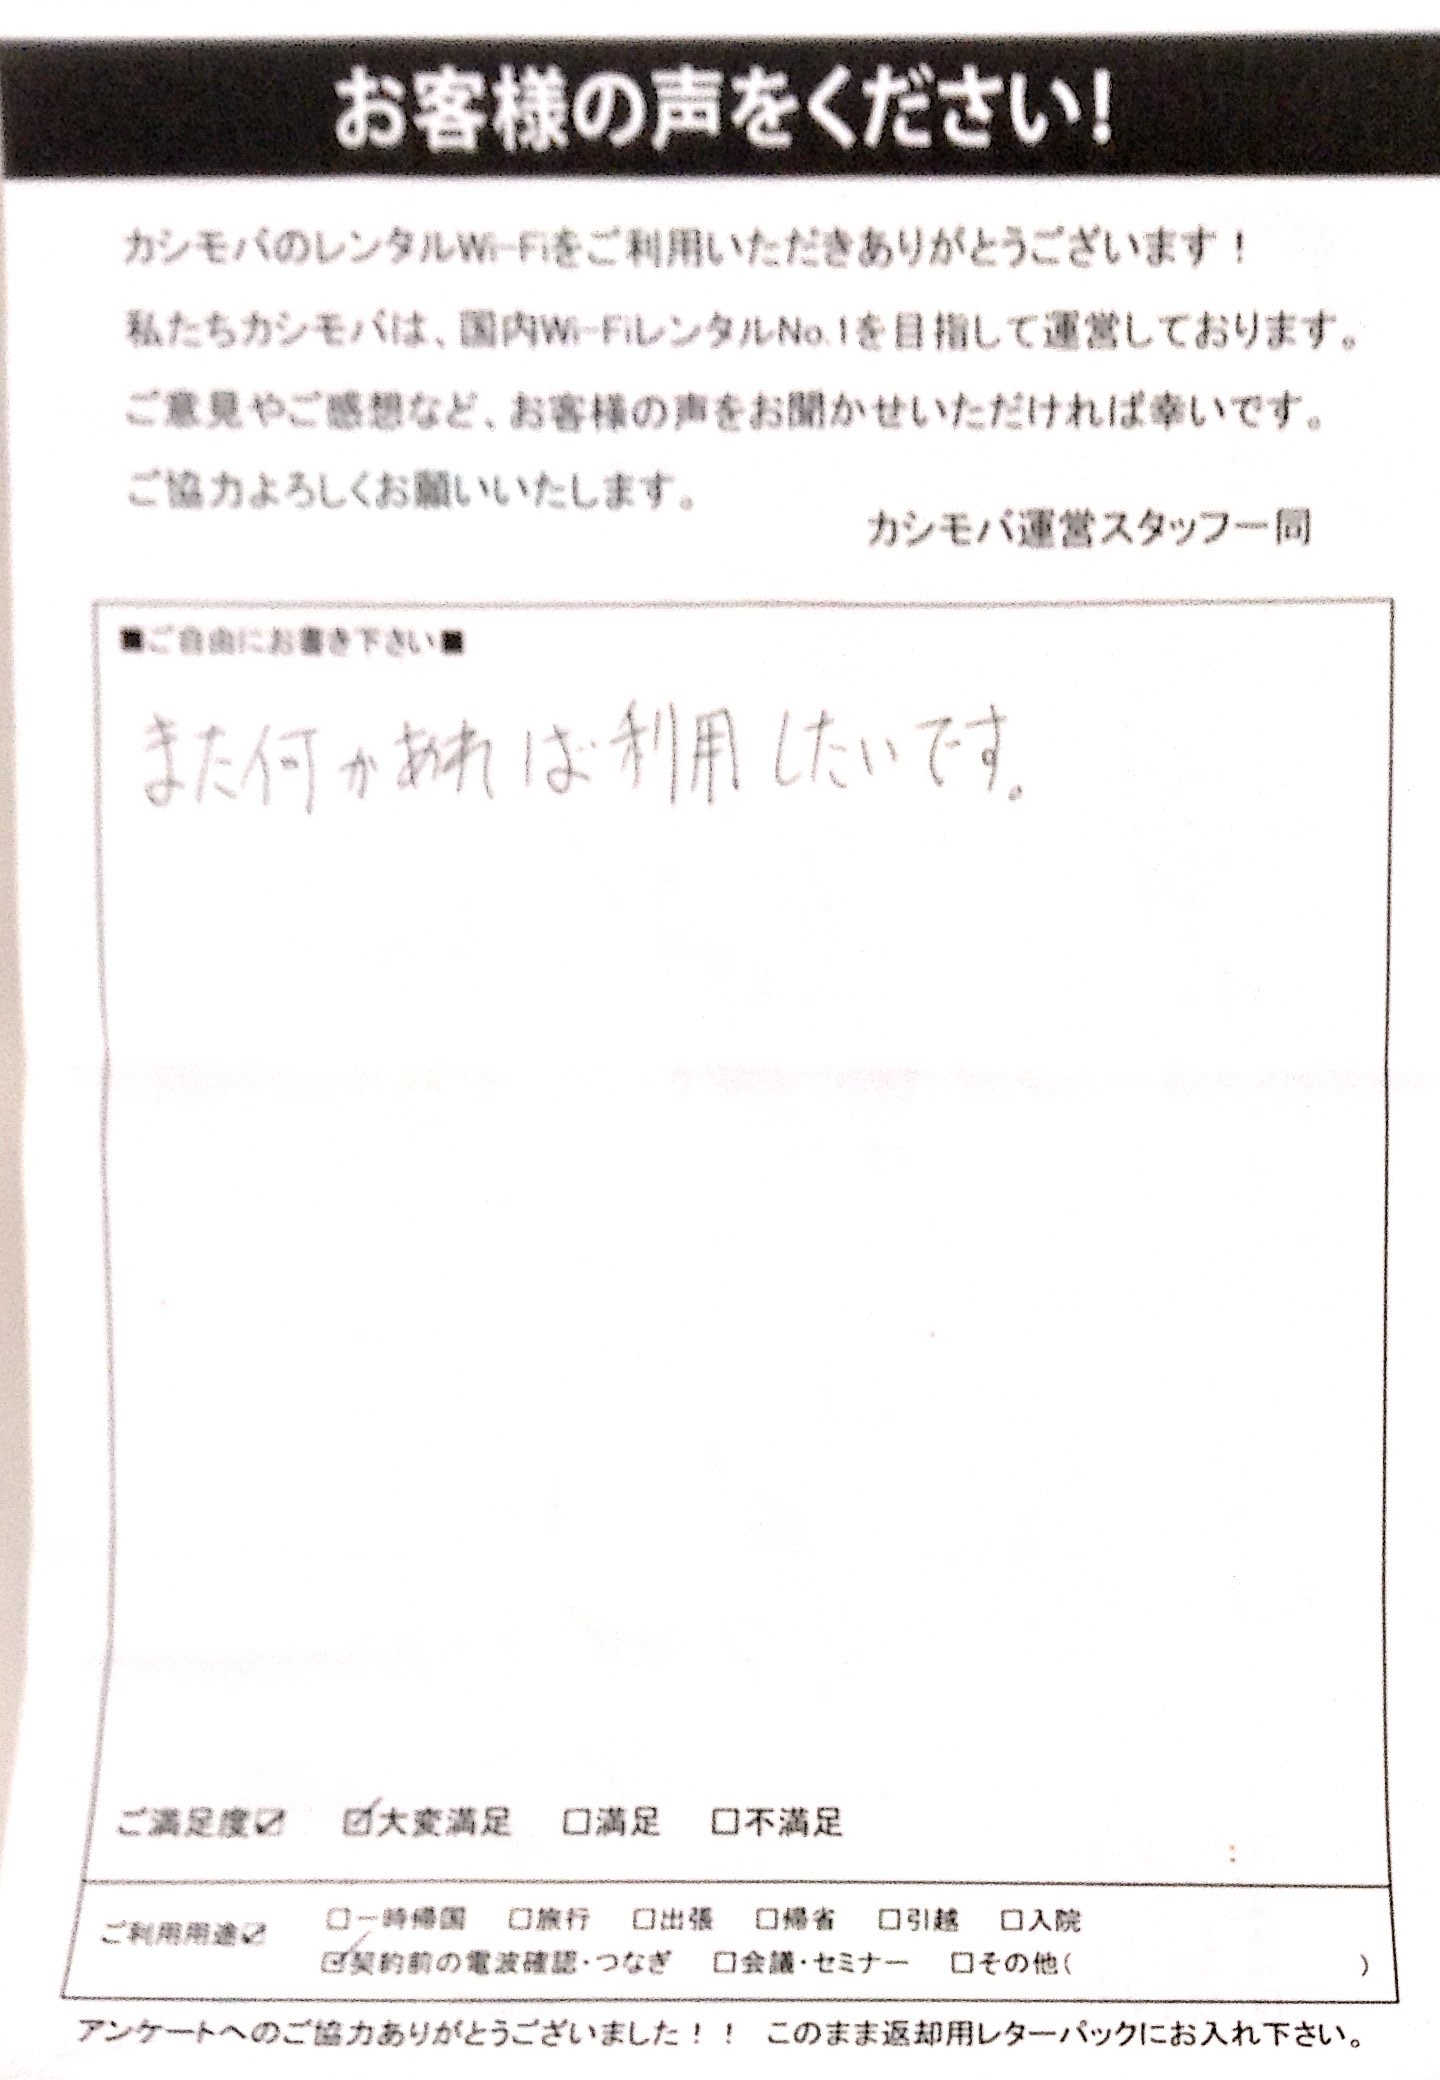 お客様の声をください!
カシモバのレンタルWi-Fiをご利用いただきありがとうございます！
私たちカシモバは、国内Wi-FiレンタルNo.1を目指して運営しております。
ご意見やご感想など、お客様の声をお聞かせいただければ幸いです。
ご協力よろしくお願いいたします。
カシモバ運営スタッフ一同
■ご自由にお書き下さい■
また何かあれば利用したいです。
ご満足度☑ ☑大変満足 □満足 □不満足
ご利用用途☑ □一時帰国 □旅行 □出張 □帰省 □引越 □入院
☑契約前の電波確認・つなぎ □会議・セミナー □その他( )
アンケートへのご協力ありがとうございました！！ このまま返却用レターパックにお入れ下さい。